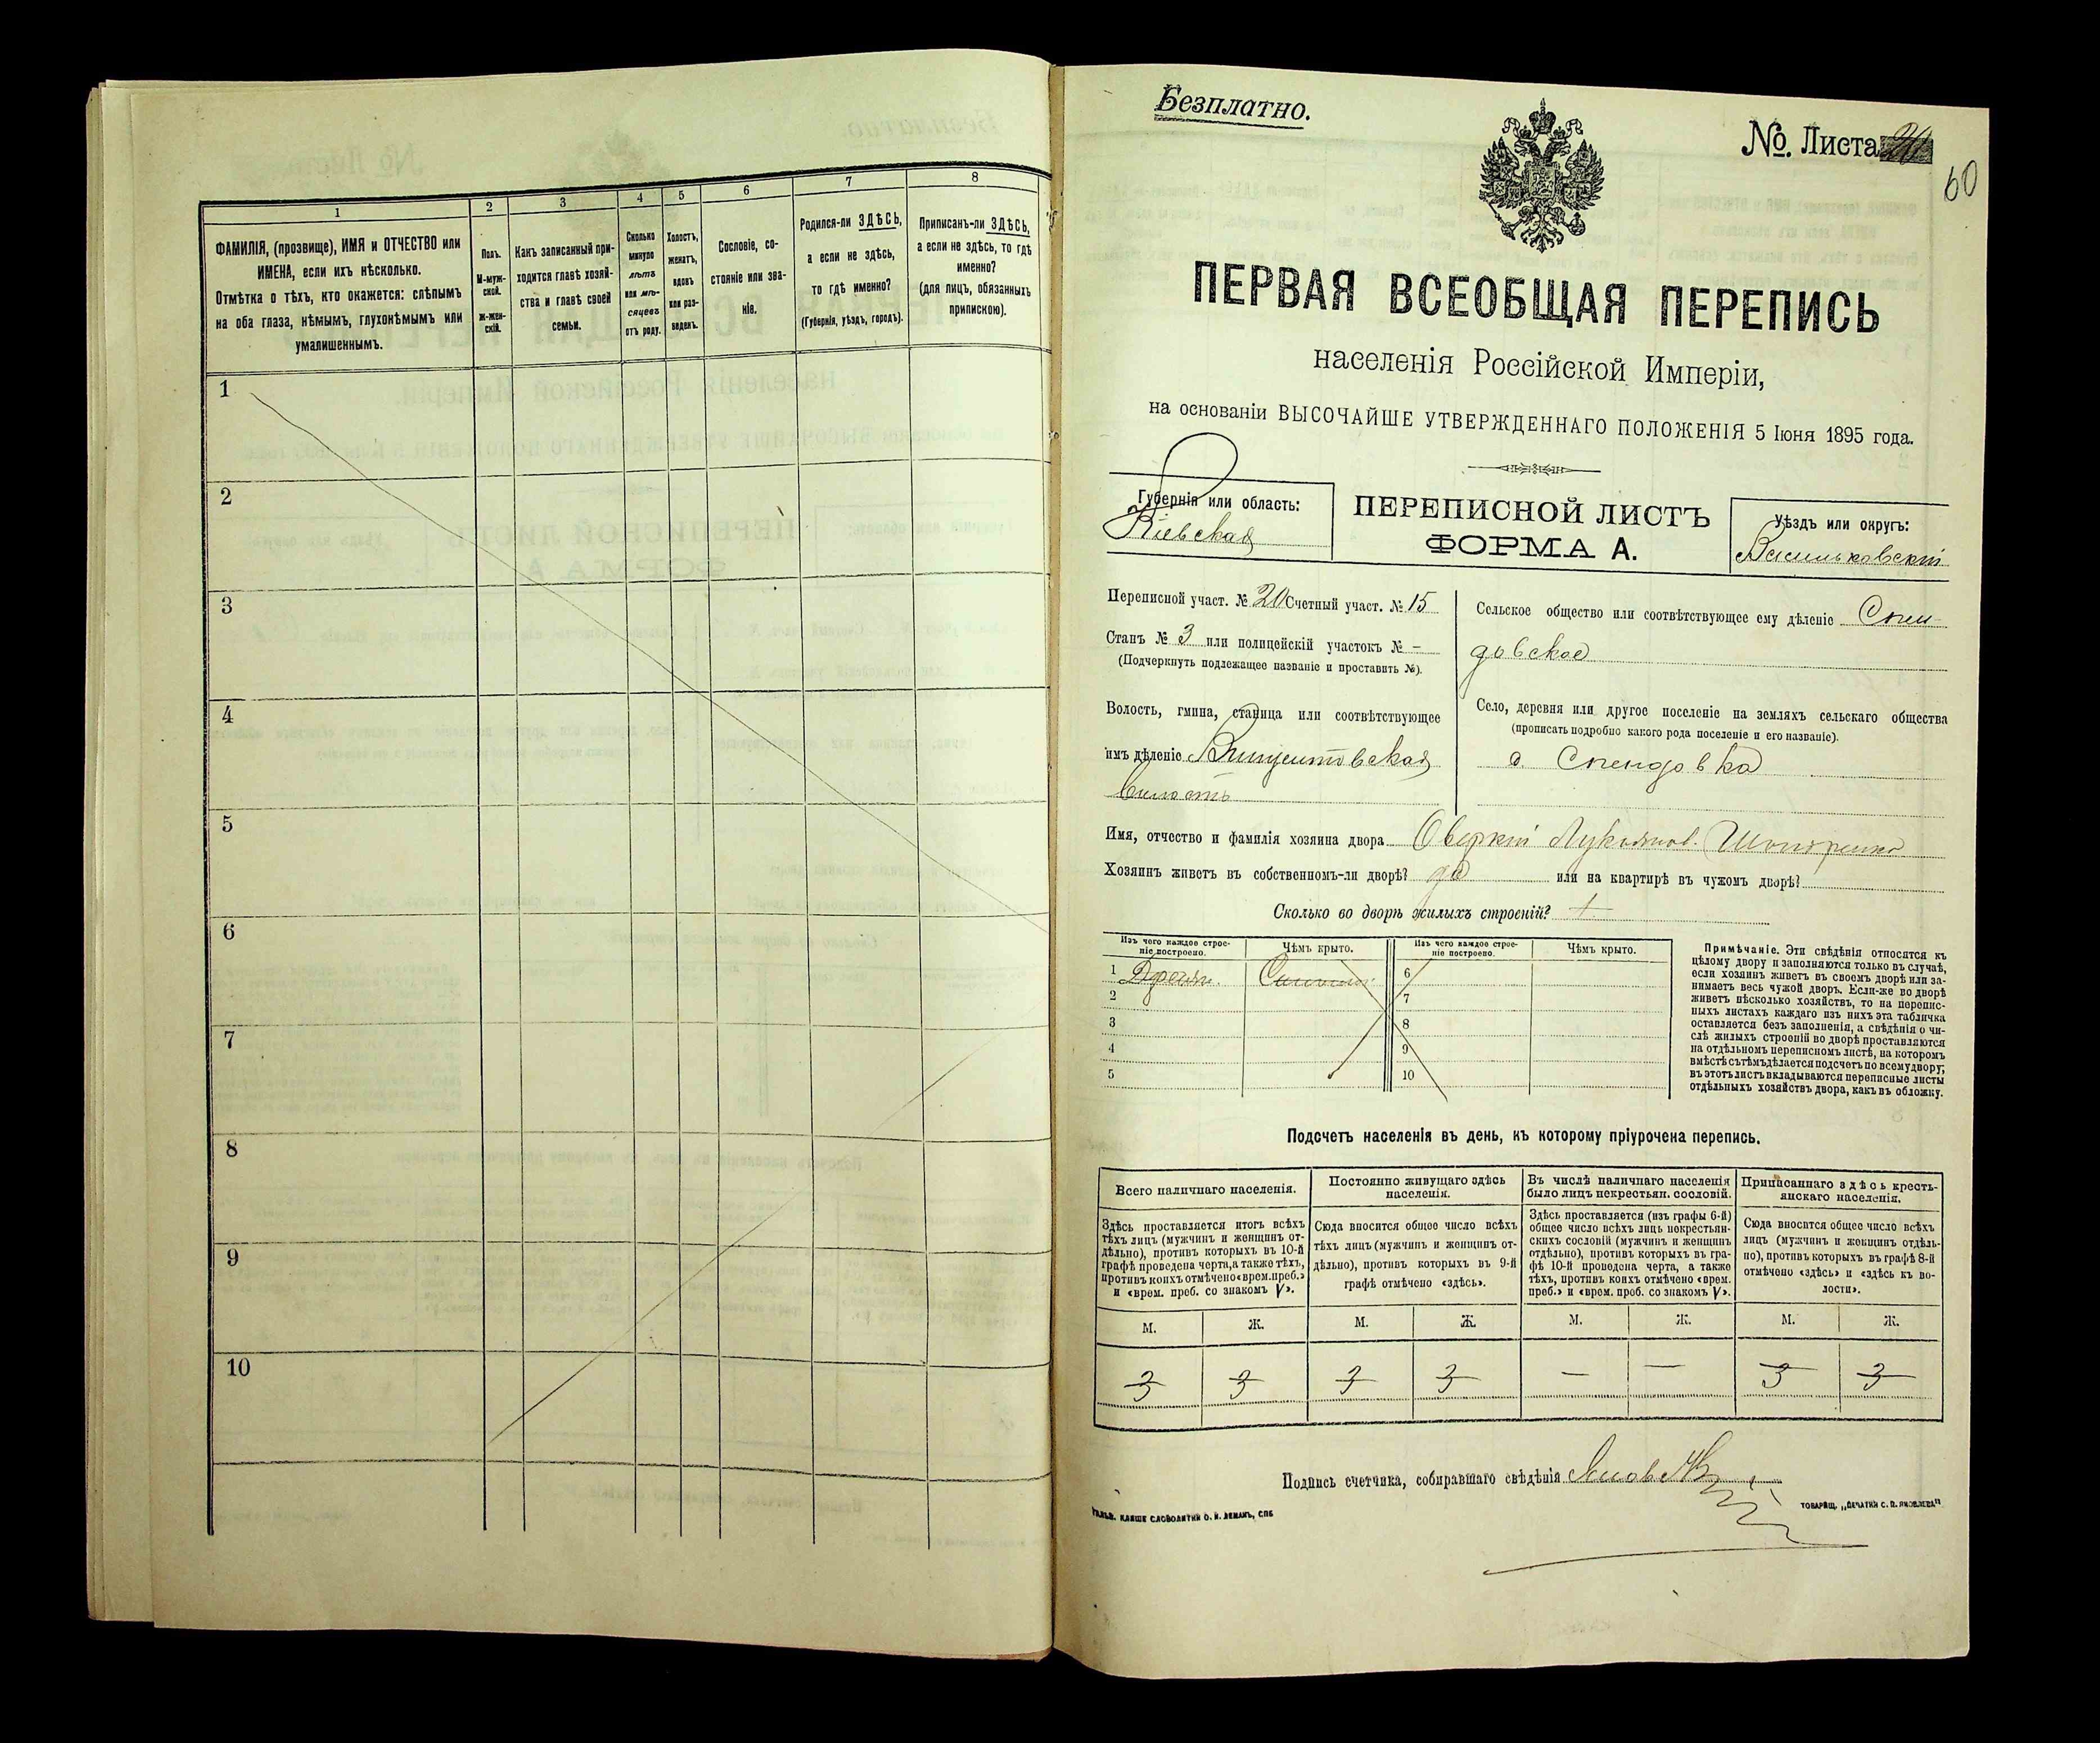 1
2
3
4
5
6
7
8
ФАМИЛІЯ, (прозвище), ИМЯ и ОТЧЕСТВО или
ИМЕНА, если ихъ нѣсколько.
Отмѣтка о тѣхъ, кто окажется: слѣпымъ
на оба глаза, нѣмымъ, глухонѣмымъ или
умалишеннымъ.
Полъ.
М-муж-
ской.
Ж-жен-
скій.
Какъ записанный при-
ходится главѣ хозяй-
ства и главѣ своей
семьи.
Сколько
минуло
лѣтъ
или мѣ-
сяцевъ
отъ роду.
Холостъ,
женатъ,
вдовъ
или раз-
веденъ.
Сословіе, со-
стояніе или зва-
ніе.
Родился-ли ЗДѢСЬ,
а если не здѣсь,
то гдѣ именно?
(Губернія, уѣздъ, городъ).
Приписанъ-ли ЗДѢСЬ,
а если не здѣсь, то гдѣ
именно?
(для лицъ, обязанныхъ
припискою).
1
2
3
4
5
6
7
8
9
10
Безплатно.
№. Листа 20
60
ПЕРВАЯ ВСЕОБЩАЯ ПЕРЕПИСЬ
населенія Россійской Имперіи,
на основаніи ВЫСОЧАЙШЕ УТВЕРЖДЕННАГО ПОЛОЖЕНІЯ 5 Іюня 1895 года.
Губернія или область:
Кіевская
ПЕРЕПИСНОЙ ЛИСТЪ
ФОРМА А.
Уѣздъ или округъ:
Васильковскій
Переписной участ. № 20 Счетный участ. № 15
Станъ № 3 или полицейскій участокъ № –
(Подчеркнуть подлежащее названіе и проставить №).
Волость, гмина, станица или соотвѣтствующее
имъ дѣленіе Винцентовская
волость
Сельское общество или соотвѣтствующее ему дѣленіе Спен-
довское
Село, деревня или другое поселеніе на земляхъ сельскаго общества
(прописать подробно какого рода поселеніе и его названіе).
с. Спендовка
Имя, отчество и фамилія хозяина двора Оверкій Лукьянов.
Хозяинъ живетъ въ собственномъ-ли дворѣ? да или на квартирѣ въ чужомъ дворѣ?
Сколько во дворѣ жилыхъ строеній? 1
Изъ чего каждое строе-
ніе построено.
Чѣмъ крыто.
Изъ чего каждое строе-
ніе построено.
Чѣмъ крыто.
1 Деревян. Соломой 6
2 7
3 8
4 9
5 10
Примѣчаніе. Эти свѣдѣнія относятся къ
цѣлому двору и заполняются только въ случаѣ,
если хозяинъ живетъ въ своемъ дворѣ или за-
нимаетъ весь чужой дворъ. Если-же во дворѣ
живетъ нѣсколько хозяйствъ, то на перепис-
ныхъ листахъ каждаго изъ нихъ эта табличка
оставляется безъ заполненія, а свѣдѣнія о чи-
слѣ жилыхъ строеній во дворѣ проставляются
на отдѣльномъ переписномъ листѣ, на которомъ
вмѣстѣ съ тѣмъ дѣлается подсчетъ по всему двору;
въ этотъ листъ вкладываются переписные листы
отдѣльныхъ хозяйствъ двора, какъ въ обложку.
Подсчетъ населенія въ день, къ которому пріурочена перепись.
Всего наличнаго населенія.
Постоянно живущаго здѣсь
населенія.
Въ числѣ наличнаго населенія
было лицъ некрестьян. сословій.
Приписаннаго здѣсь кресть-
янскаго населенія.
Здѣсь проставляется итогъ всѣхъ
тѣхъ лицъ (мужчинъ и женщинъ от-
дѣльно), противъ которыхъ въ 10-й
графѣ проведена черта, а также тѣхъ,
противъ коихъ отмѣчено «врем. преб.»
и «врем. преб. со знакомъ V».
Сюда вносится общее число всѣхъ
тѣхъ лицъ (мужчинъ и женщинъ от-
дѣльно), противъ которыхъ въ 9-й
графѣ отмѣчено «здѣсь».
Здѣсь проставляется (изъ графы 6-й)
общее число всѣхъ лицъ некрестьян-
скихъ сословій (мужчинъ и женщинъ
отдѣльно), противъ которыхъ въ гра-
фѣ 10-й проведена черта, а также
тѣхъ, противъ коихъ отмѣчено «врем.
преб.» и «врем. преб. со знакомъ V».
Сюда вносится общее число всѣхъ
лицъ (мужчинъ и женщинъ отдѣль-
но), противъ которыхъ въ графѣ 8-й
отмѣчено «здѣсь» и «здѣсь къ во-
лости».
М. Ж. М. Ж. М. Ж. М. Ж.
3 3 3 3 — — 3 3
Подпись счетчика, собиравшаго свѣдѣнія
ГАЛЬВ. КЛИШЕ СЛОВОЛИТНИ О. И. ЛЕМАНЪ, СПБ
ТОВАРИЩ. „ПЕЧАТНИ С. П. ЯКОВЛЕВА“